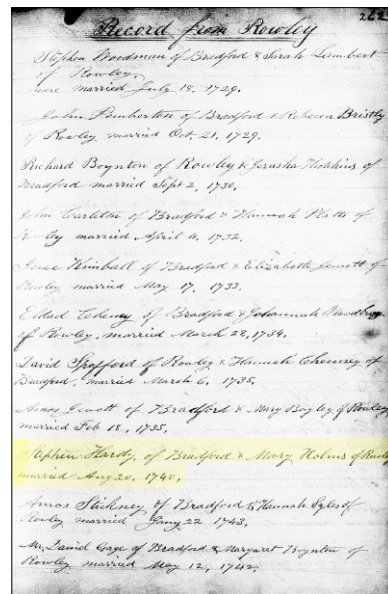 262
Record from Rowley
Stephen Woodman of Bradford & Sarah Lambert
of Rowley,
were married July 18, 1729.
John Pemberton of Bradford & Rebecca Bristly
of Rowley married Oct. 21, 1729.
Richard Boynton of Rowley & Jerusha Hutchins of
Bradford married Sept 2, 1730.
John Carleton of Bradford & Hannah Platts of
Rowley married April 4, 1732.
Isaac Kimball of Bradford & Elizabeth Jewett of
Rowley married May 17, 1733.
Eldad Cheney of Bradford & Johannah Woodbury
of Rowley, married March 28, 1734.
David Spofford of Rowley & Hannah Chenrey of
Bradford married March 6, 1735.
Amos Jewett of Bradford & Mary Bayley of Rowley
married Feb 18, 1735.
Stephen Hardy of Bradford & Mary Holms of Rowley
married Aug 20, 1740.
Amos Stickney of Bradford & Hannah Syles of
Rowley married Jany 22 1743.
Mr. Daniel Gage of Bradford & Margaret Boynton of
Rowley married May 12, 1742.